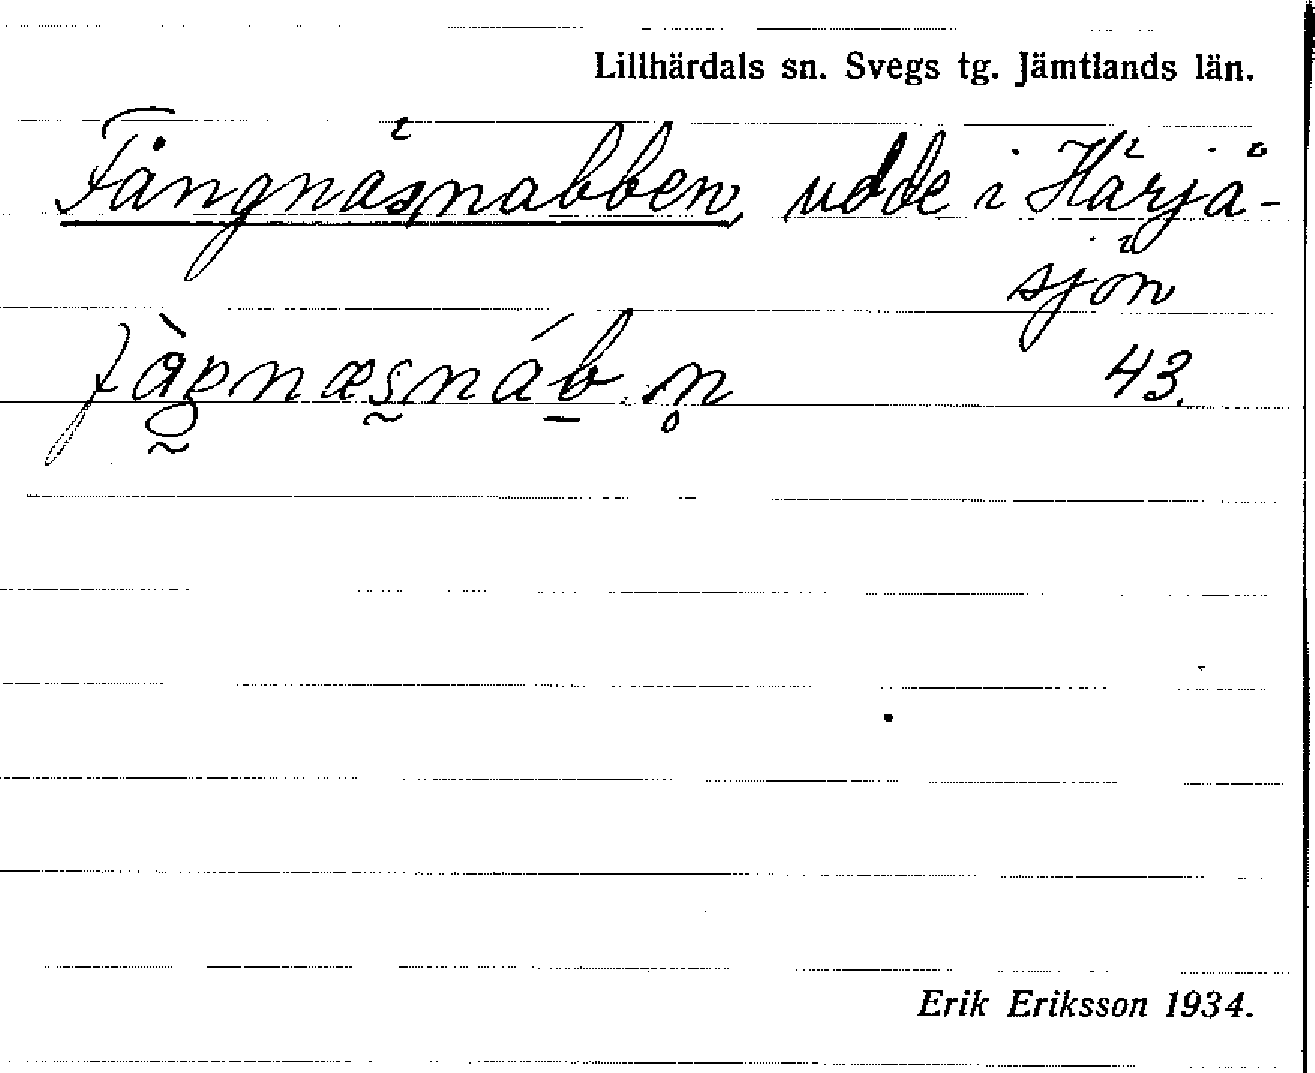 Lillhärdals sn. Svegs tg. Jämtlands län.
Fångnäsnabben, udde i Härjå-
sjön
43.
Erik Eriksson 1934.